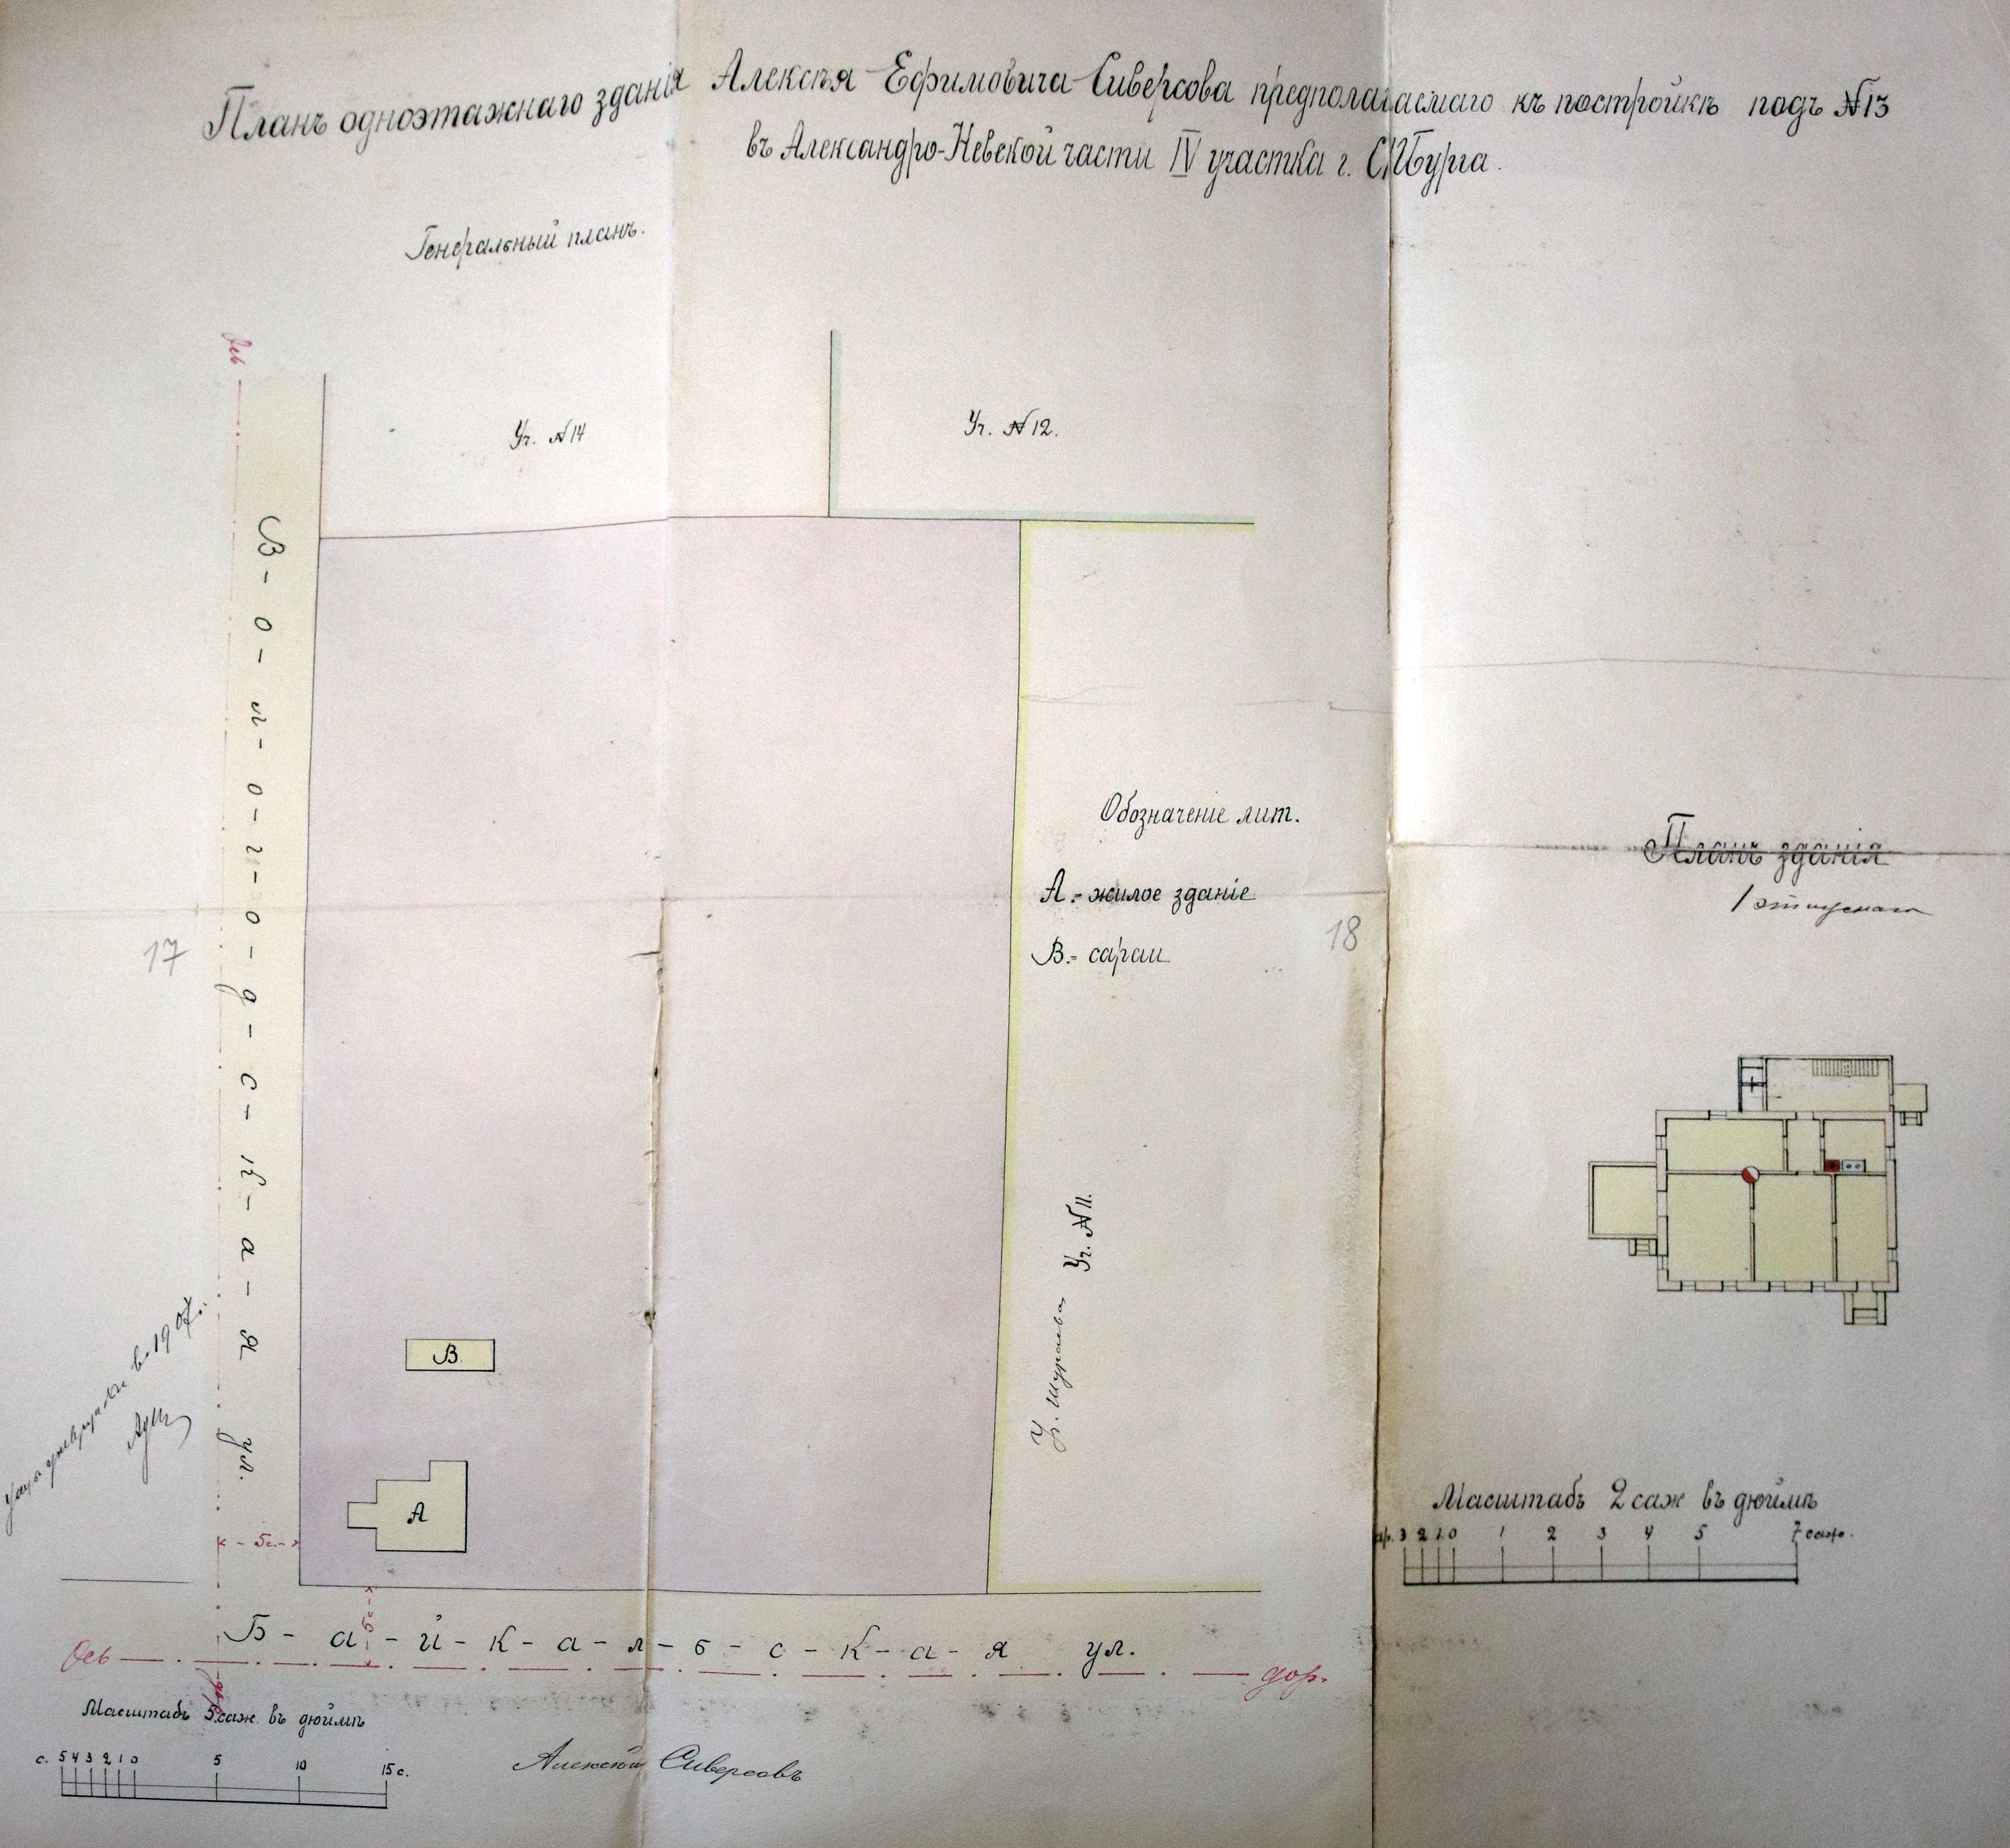 Планъ одноэтажнаго зданія Алексѣя Ефимовича Сиверсова предполагаемаго къ постройкѣ подъ №13
въ Александро-Невской части IV участка г. СПБурга.
Генеральный планъ.
Ось
Уч. №14
Уч. №12.
В-о-л-о-г-о-д-с-к-а-я ул.
Обозначеніе лит.
А.- жилое зданіе
В.- сараи
17
18
Планъ зданія
1 этажа
В.
А
Уч. №11.
в 1907г.
5с.
5с
Б-а-й-к-а-л-ь-с-к-а-я ул.
Ось
дор.
дор.
Масштабъ 5 саж. въ дюймѣ
с. 5 4 3 2 1 0 5 10 15 с.
Алексѣй Сиверсовъ
Масштабъ 2 саж въ дюймѣ
ар. 3 2 1 0 1 2 3 4 5 7 саж.